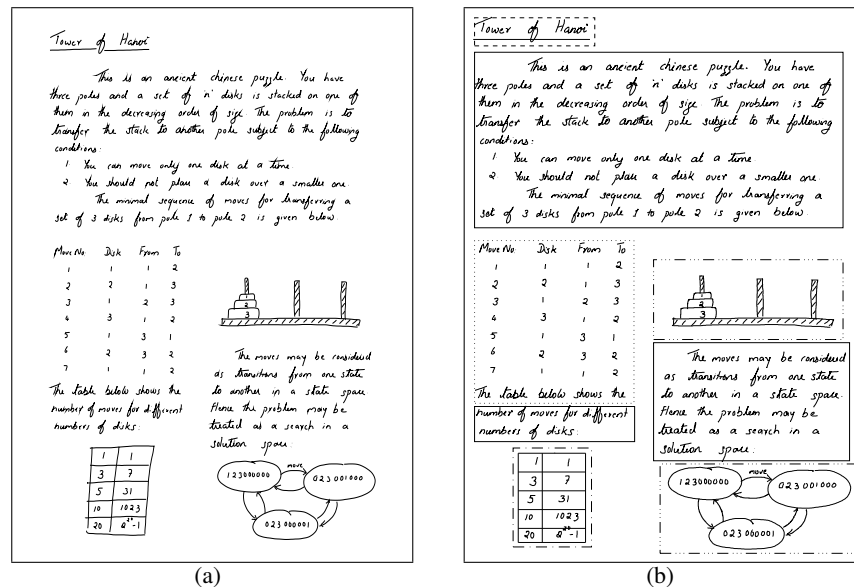 Tower of Hanoi
This is an ancient chinese puzzle. You have
three poles and a set of 'n' disks is stacked on one of
them in the decreasing order of size. The problem is to
transfer the stack to another pole subject to the following
conditions:
1 You can move only one disk at a time.
2 You should not place a disk over a smaller one.
The minimal sequence of moves for transferring a
set of 3 disks from pole 1 to pole 2 is given below.
Move No. Disk From To
1 1 1 2
2 2 1 3
3 1 2 3
4 3 1 2
5 1 3 1
6 2 3 2
7 1 1 2
The table below shows the
number of moves for different
numbers of disks:
1 1
3 7
5 31
10 1023
20 2^20-1
1
2
3
The moves may be considered
as transitions from one state
to another in a state space.
Hence the problem may be
treated as a search in a
solution space.
move
123000000
023001000
023000001
(a)
Tower of Hanoi
This is an ancient chinese puzzle. You have
three poles and a set of 'n' disks is stacked on one of
them in the decreasing order of size. The problem is to
transfer the stack to another pole subject to the following
conditions:
1 You can move only one disk at a time.
2 You should not place a disk over a smaller one.
The minimal sequence of moves for transferring a
set of 3 disks from pole 1 to pole 2 is given below.
Move No. Disk From To
1 1 1 2
2 2 1 3
3 1 2 3
4 3 1 2
5 1 3 1
6 2 3 2
7 1 1 2
The table below shows the
number of moves for different
numbers of disks:
1 1
3 7
5 31
10 1023
20 2^20-1
1
2
3
The moves may be considered
as transitions from one state
to another in a state space.
Hence the problem may be
treated as a search in a
solution space.
move
123000000
023001000
023000001
(b)